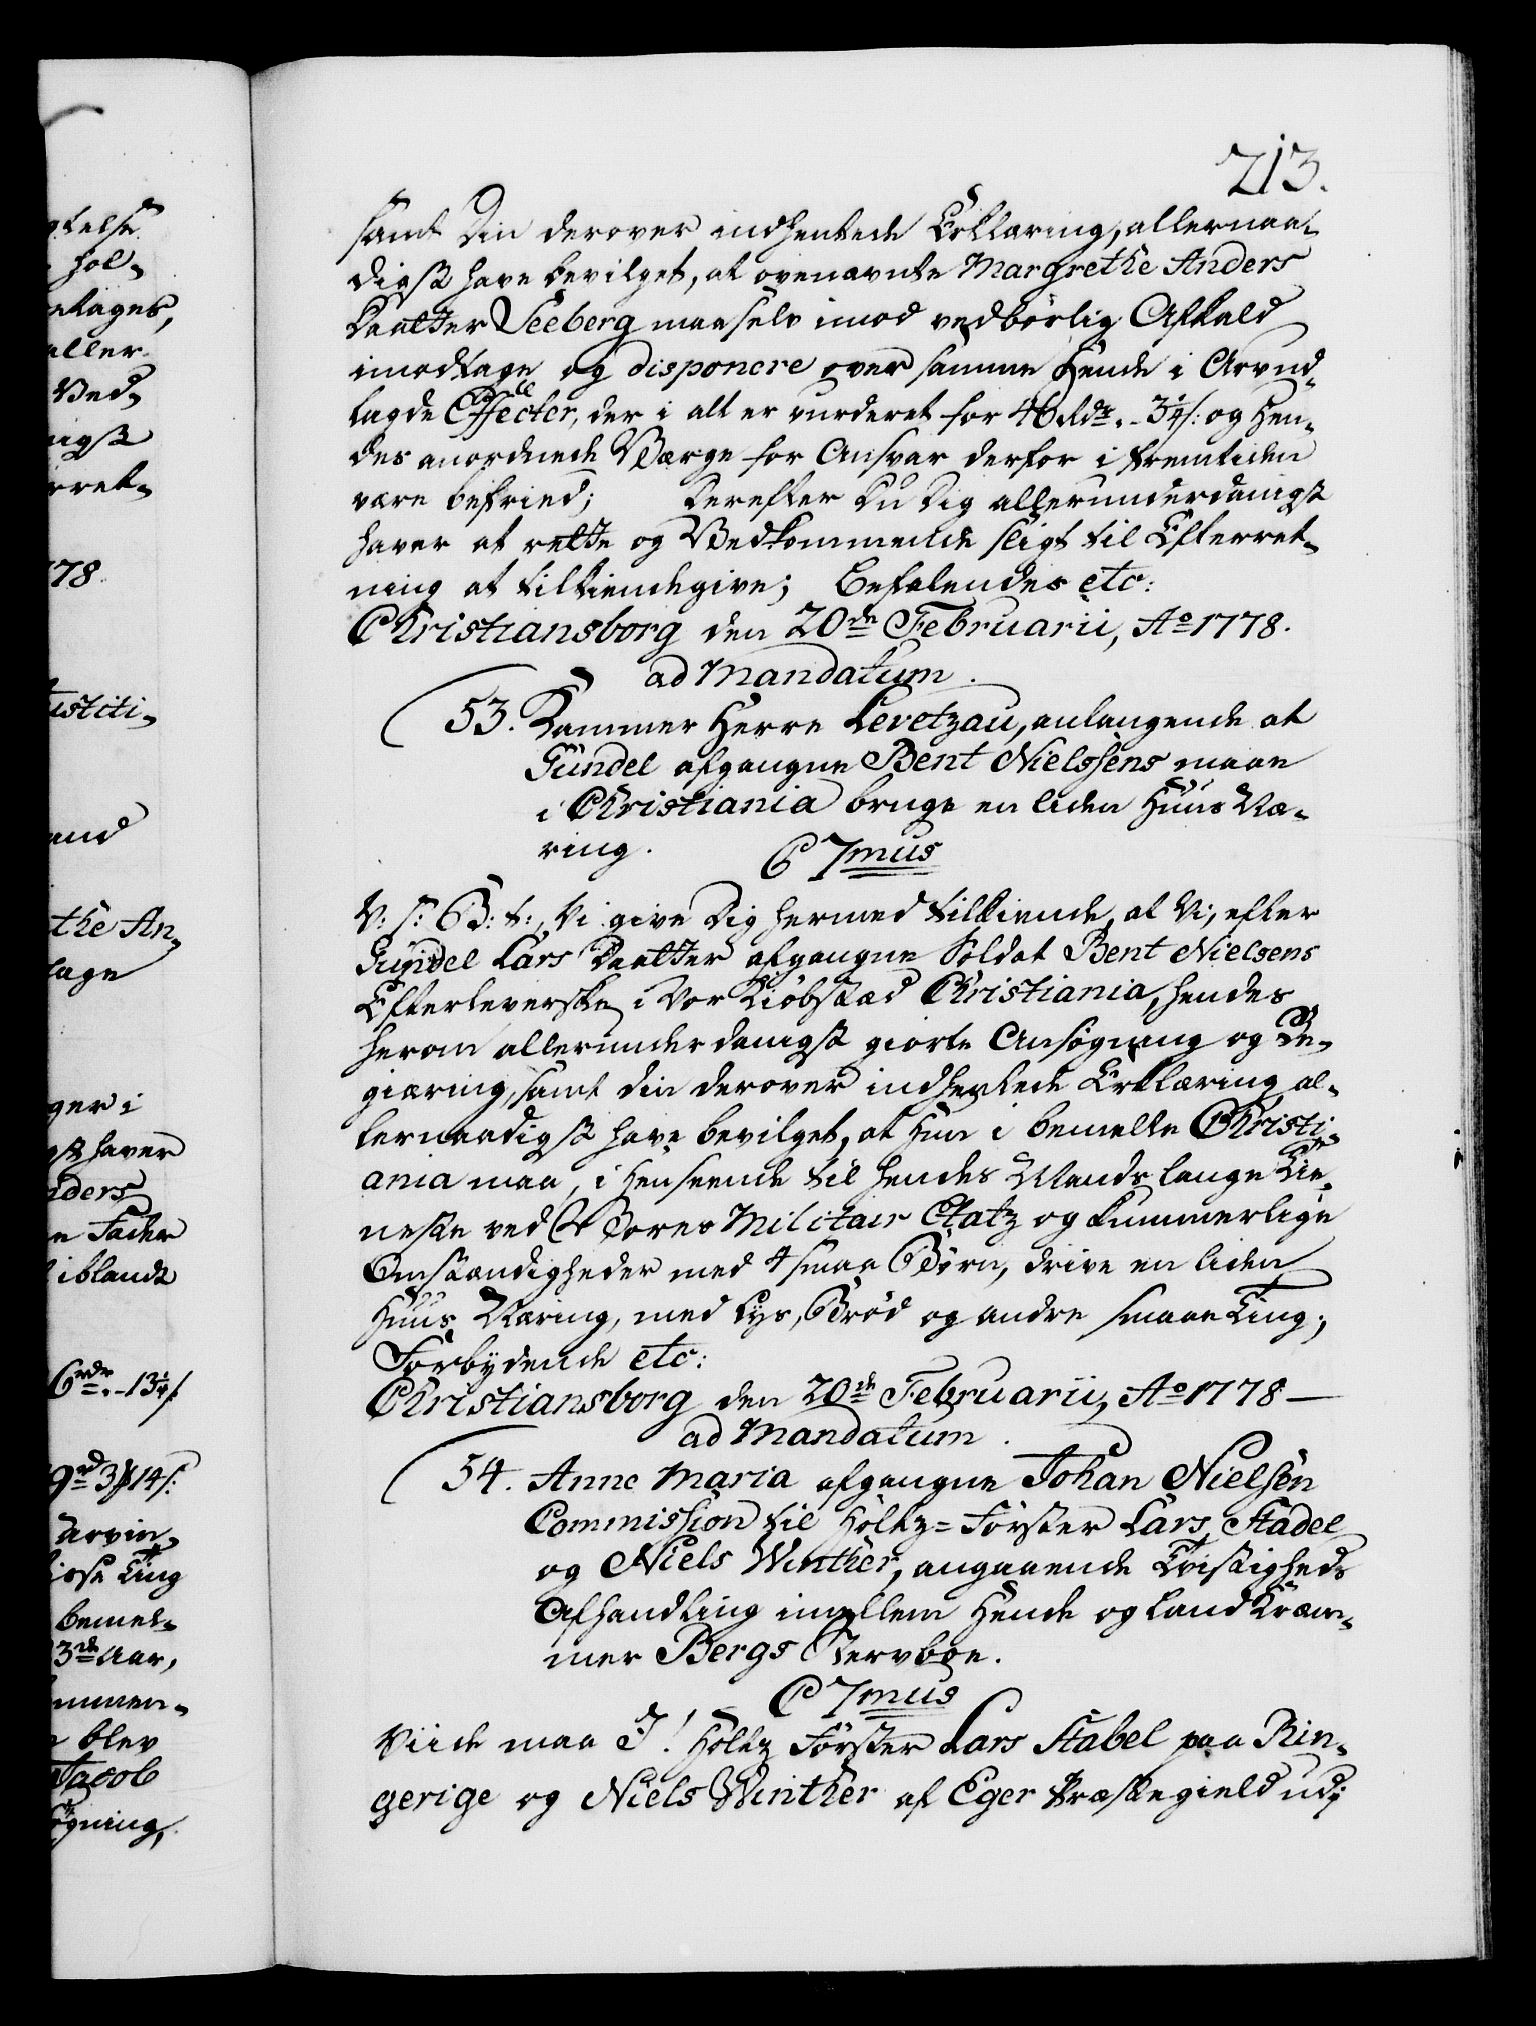 213.
samt Din derover indhentede Erklæring, allernaa-
digst have bevilget, at ovennævnte Margrethe Anders
Daatter Seeberg maa selv imod vedbørlig Afkald
imodtage og disponere over samme Hende i Arv ud-
lagde Effecter, der i alt er vurderet for 46 Rdr. - 3¼ s: og hen-
des anordnede Værge for Ansvar derfor i fremtiden
være befried; Derefter Du Dig allerunderdanigst
haver at rette og Vedkommende sligt til Efterret-
ning at tilkiendegive; Befalendes etc:
Christiansborg den 20de Februarii, Ao 1778.
ad Mandatum.
53. Kammer Herre Levetzau, anlangende at
Gundel afgangne Bent Nielssens maae
i Christiania bruge en liden Huus Næ-
ring.
C 7mus
V: S: G: t:, Vi give Dig hermed tilkiende, at Vi, efter
Gundel Lars Daatter afgangne Soldat Bent Nielsens
Efterleverske i Vor Kiøbstæd Christiania, hendes
herom allerunderdanigst giorte Ansøgning og Be-
giæring, samt Din derover indhentede Erklæring al-
lernaadigst have bevilget, at Hun i bemelte Christi-
ania maa, i Henseende til hendes Mands lange Tie-
neste ved Vores Militair Etatz og kummerlige
Omstændigheder med 4 smaa Børn, drive en liden
Huus Næring, med Lys, Brød og andre smaae Ting;
Forbydende etc:
Christiansborg den 20de Februarii, Ao 1778 —
ad Mandatum.
54. Anne Maria afgangne Johan Nielsen
Commission til Holtz-Förster Lars Stabel
og Niels Winther, angaaende Tvistigheds
Afhandling imellem Hende og Land Kræm-
mer Bergs Stervboe.
C 7mus
Viide maa I! Holtz Förster Lars Stabel paa Rin-
gerige og Niels Winther af Eger Præstegield udi